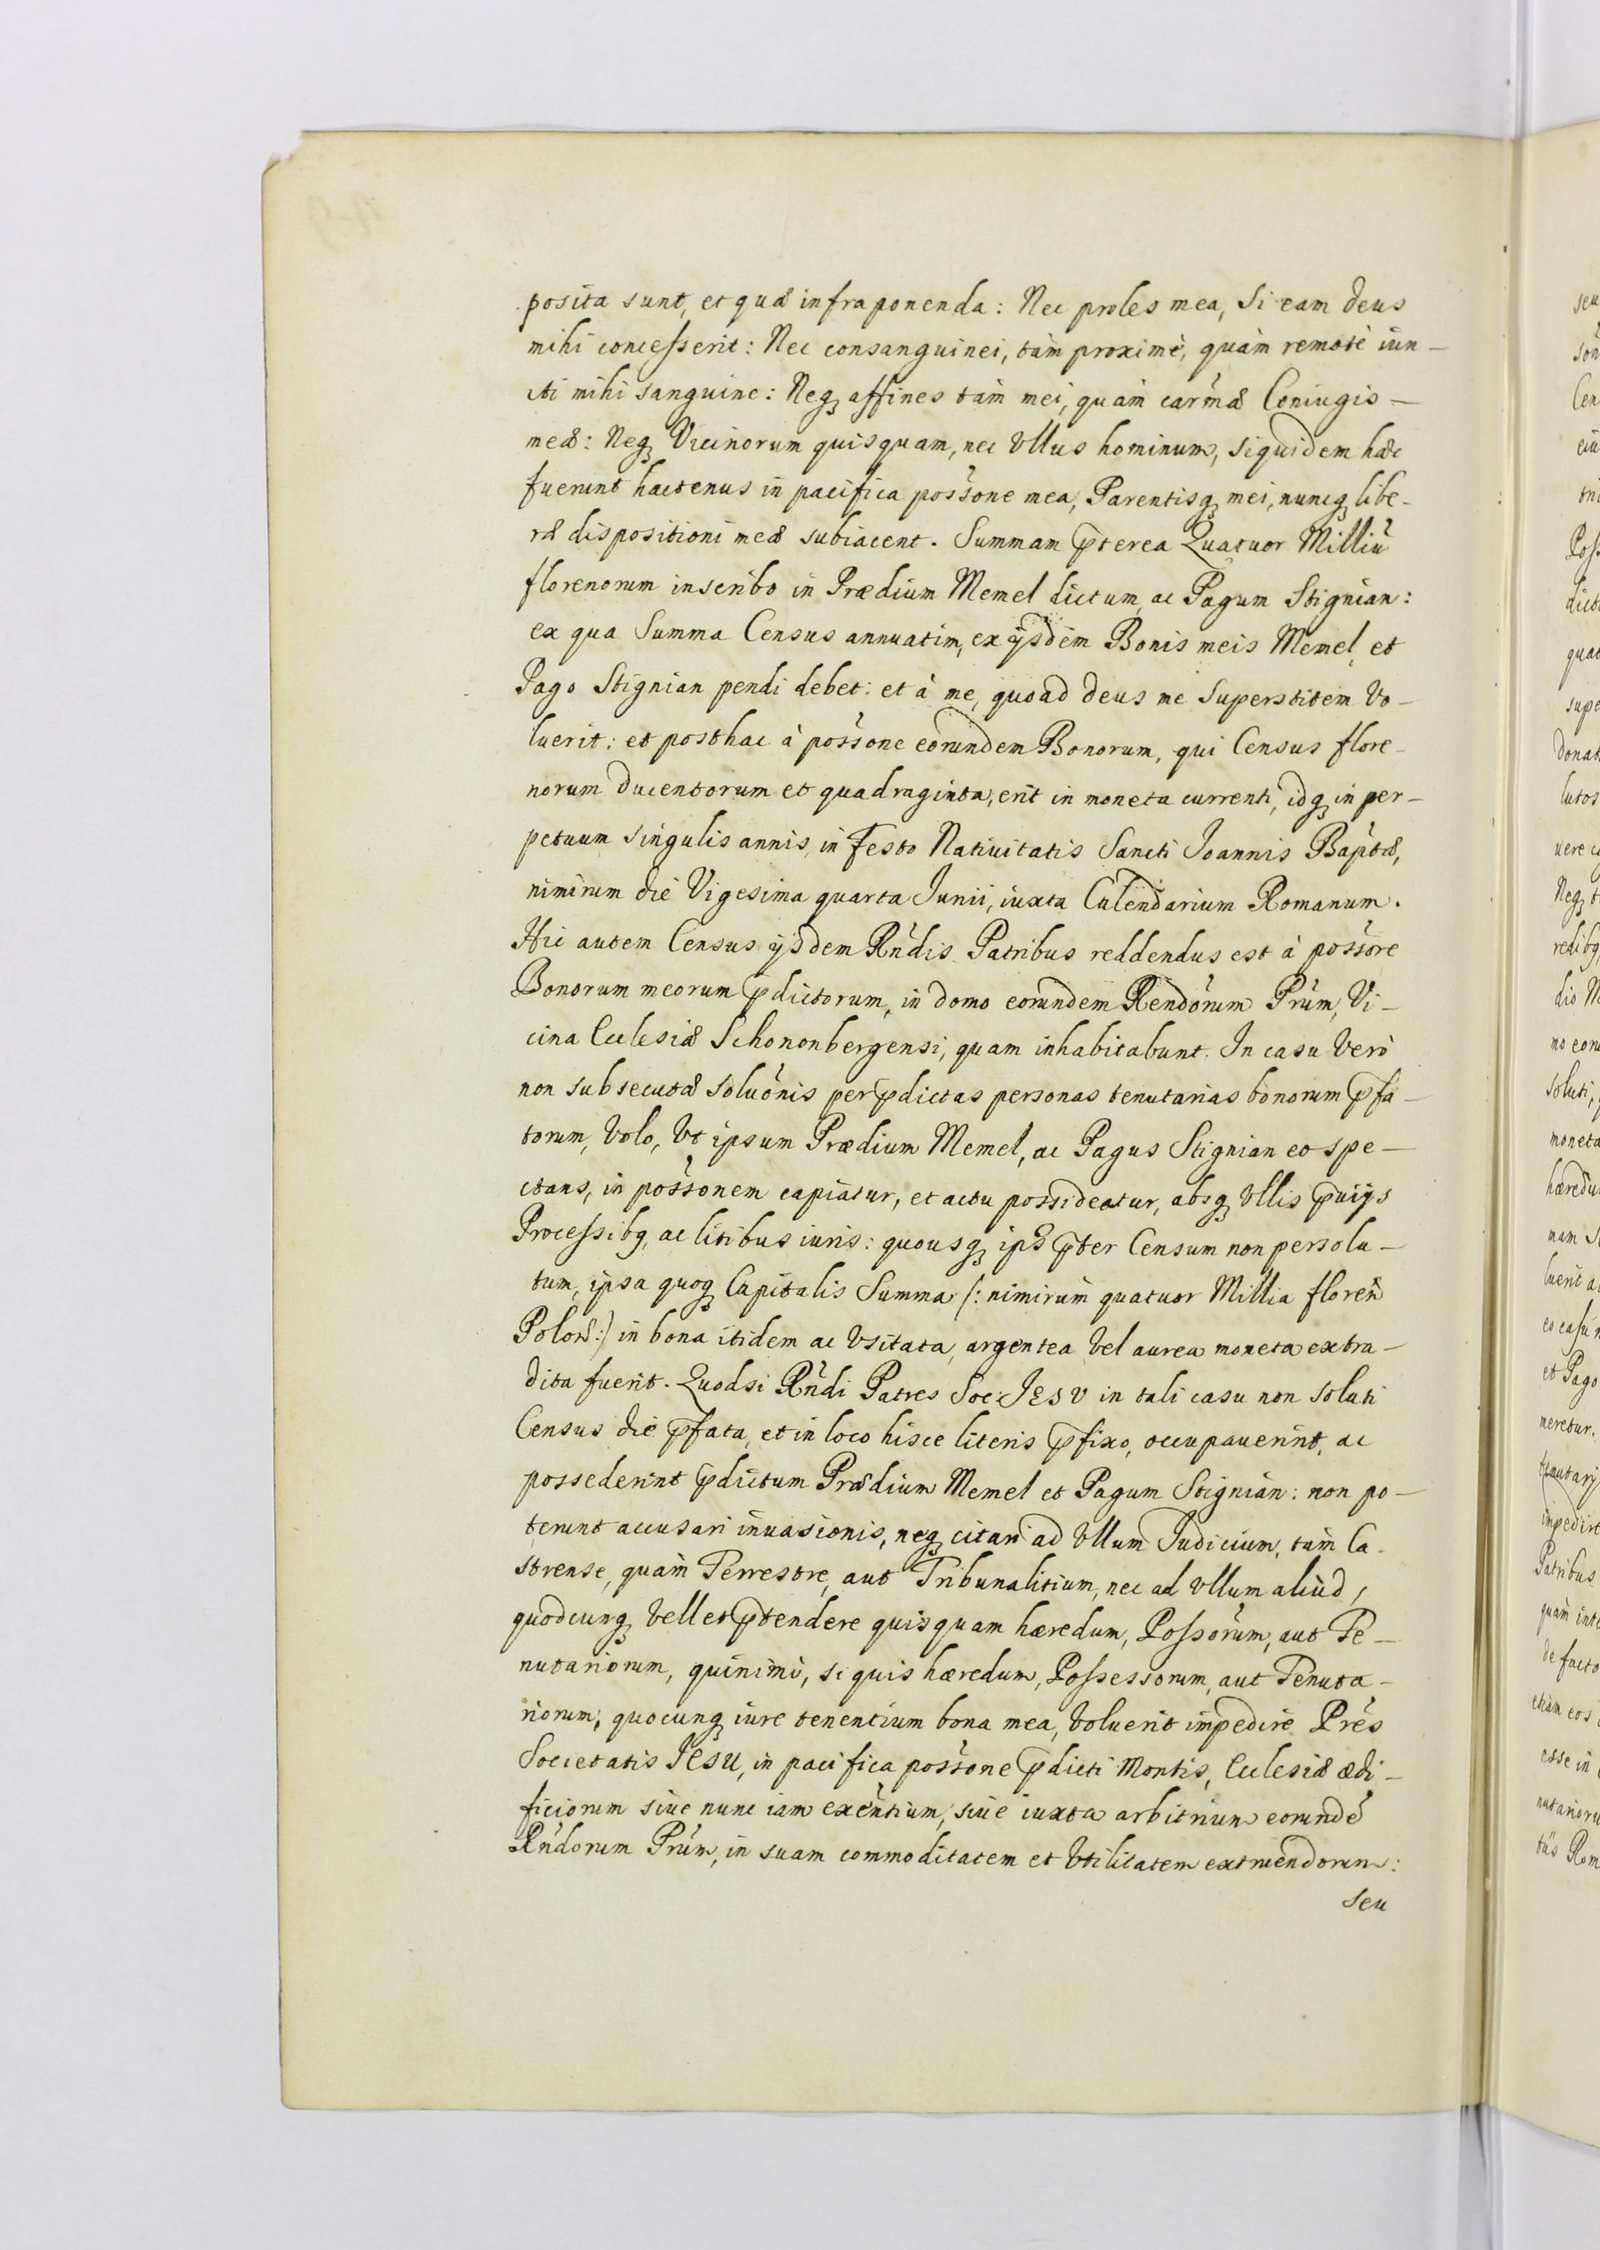 posita sunt, et quæ infraponenda: Nec proles mea, si eam deus
mihi concesserit: Nec consanguinei, tàm proximè, quàm remotè iun-
cti mihi sanguine: Neq₃ affines tàm mei, quàm carm̃æ Coniugis -
meæ: Neq₃ Vicinorum quisquam, nec Vllus hominum, siquidem hæc
fuerunt hactenus in pacifica possõne mea, Parentisq₃ mei, nuncq₃ libe-
ræ dispositioni meæ subiacent. Summam p̃terea Quatuor Milliũ
florenorum inscribo in Prædium Memel dictum, ac Pagum Stignian:
ex qua Summa Census annuatim, ex ijsdem Bonis meis Memel, et
Pago Stignian pendi debet: et à me, quoad deus me superstitem Vo-
luerit: et posthac à possõne eorundem Bonorum, qui Census flore-
norum ducentorum et quadraginta, erit in moneta currenti, idq₃ in per-
petuum singulis annis, in Festo Natiuitatis Sancti Joannis Bap̃tæ,
nimirum die Vigesima quarta Junii, iuxta Calendarium Romanum.
Hic autem Census ijsdem Rñdis Patribus reddendus est à possõre
Bonorum meorum p̃dictorum, in domo eorundem Rendõrum Prũm, Vi-
cina Ecclesiæ Schononbergensi, quam inhabitabunt. In casu Verò
non subsecutæ soluõnis per p̃dictas personas tenutarias bonorum p̃fa-
torum, Volo, Vt ipsum Prædium Memel, ac Pagus Stignian eo spe-
ctans, in possõnem capiatur, et actu possideatur, absq₃ Vllis p̃uijs
Processibq₃ ac litibus iuris: quousq₃ ip̃s p̃ter Censum non persolu-
tum, ipsa quoq₃ Capitalis Summa (: nimirùm quatuor Millia floreñ
Polon̄:) in bona itidem ac Vsitata, argentea Vel aurea moneta extra-
dita fuerit. Quodsi Rñdi Patres Soc: JESV in tali casu non soluti
Census die p̃fata, et in loco hisce literis p̃fixo, occupauerint, ac
possederint p̃dictum Prædium Memel et Pagum Stignian: non po-
terunt accusari inuasionis, neq₃ citari ad Vllum Judicium, tàm Ca-
strense, quàm Terrestre, aut Tribunalitium, nec ad Vllum aliud,
quodcunq₃ Vellet p̃tendere quisquam hæredum, Possõrum, aut Te-
nutariorum, quinimò, si quis hæredum, Possessorum, aut Tenuta-
riorum, quocunq₃ iure tenentium bona mea, Voluerit impedire Prẽs
Societatis JESU, in pacifica possõne p̃dicti Montis, Ecclesiæ ædi-
ficiorum siue nunc iam exẽntium, siue iuxta arbitrium eorundẽ
Rñdorum Prũm, in suam commoditatem et Vtilitatem extruendorum:
seu